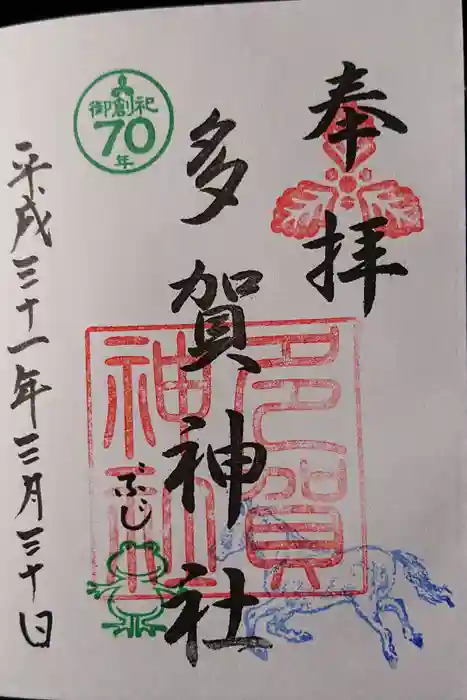 奉拝
多賀神社
御創祀
70
年
多賀
神社
ぶじ
平成三十一年三月三十日